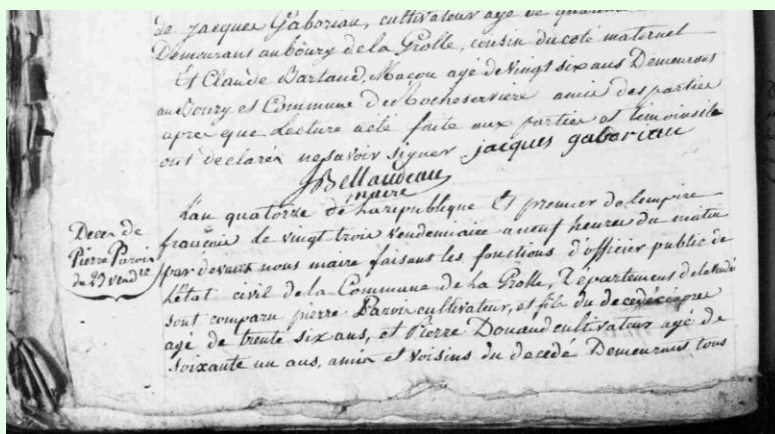 de jacques Gaboriau, cultivateur agé de
Demeurans au bourg de la Grolle, cousin du coté maternel
Et Claude Bartaud, Macon agé de vingt six ans Demeurans
au Bourg et Commune de Rocheserviere amis des partie
apre que Lecture a été faite aux partie et témoins ils
ont declarén ne savoir signer jacques gaboriau
JBellaudeau
maire
Deces de
Pierre Parois
du 23 vendre
L'an quatorze de la republique Et premier de l'empire
françois le vingt trois vendemiaire a neuf heures du matin
par devant nous maire faisant les fonctions d'officier public de
L'état civil de la Commune de la Grolle, Département de la vendé
sont comparu pierre Parois cultivateur, et fils du decedé
agé de trente six ans, et Pierre Douaud cultivateur agé de
soixante un ans, amis et voisins du decedé Demeurans tous